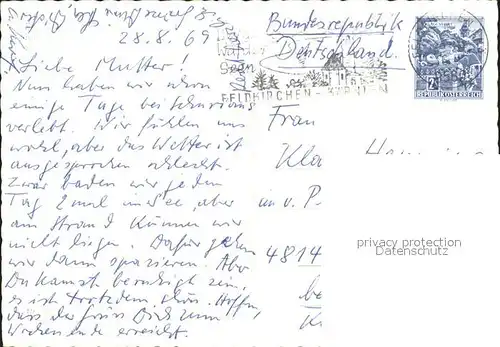 28.8.69
Liebe Mutter!
Nun haben wir schon
einige Tage bei
verlebt. Wir fühlen uns
wohl, aber das Wetter ist
ausgesprochen schlecht.
Zwar baden wir jeden
Tag 2mal im See, aber
am Strand können wir
nicht liegen. Dafür gehen
wir dann spazieren. Aber
Du kannst beruhigt sein,
es ist trotzdem schön. Hoffen,
dass der Gruss Dich zum
Wochenende erreicht.
Bundesrepublik
Deutschland.
FELDKIRCHEN - KÄRNTEN
REPUBLIK ÖSTERREICH
Frau
Kla
i.v. P.
4814
be
K
privacy protection
Datenschutz